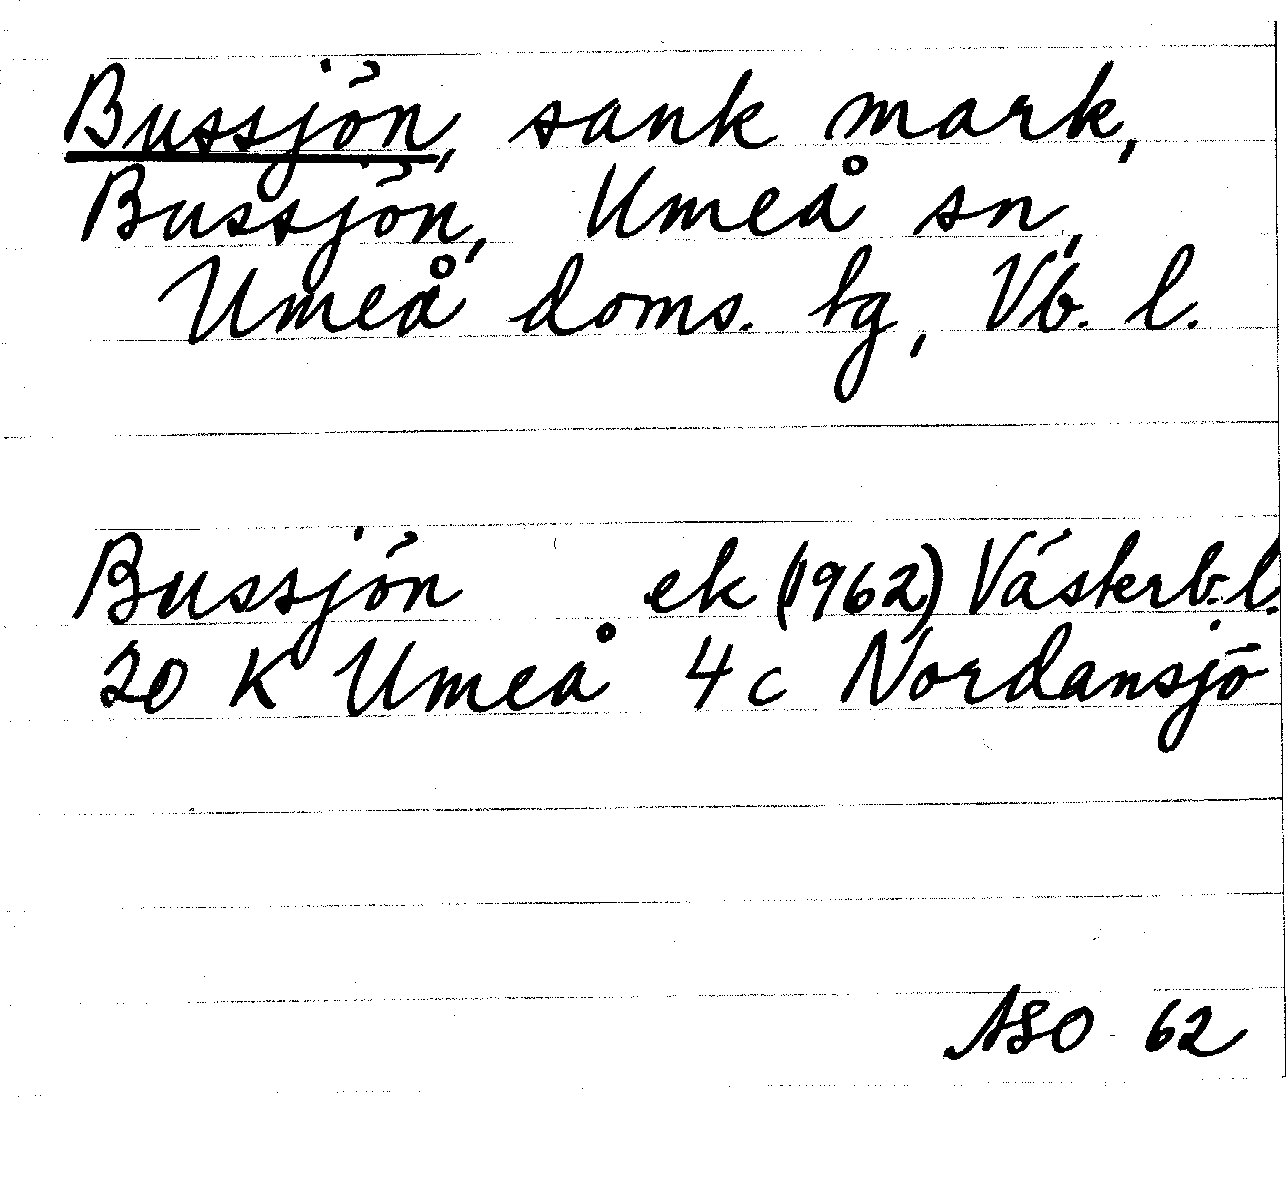 Bussjön, sank mark,
Bussjön, Umeå sn,
Umeå doms. tg, Vb. l.
Bussjön ek (1962) Västerb. l.
20 K Umeå 4c Nordansjö
ASO 62